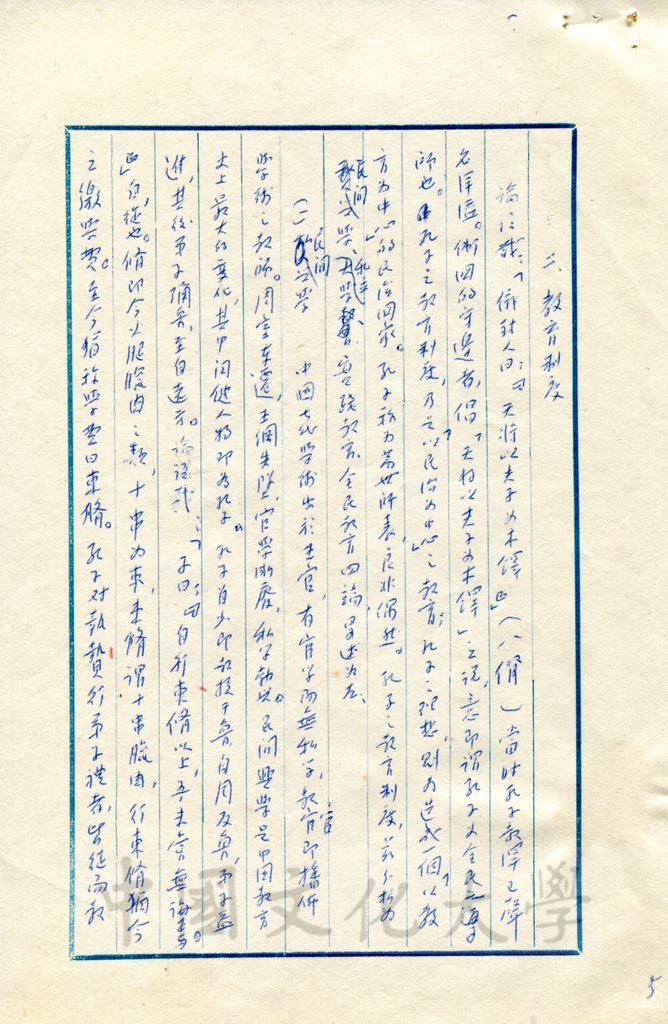 二、教育制度
論語載：「儀封人曰：曰天將以夫子為木鐸」（八佾）當時孔子教澤已薄
名洋溢。衛國的守邊者，倡「天將以夫子為木鐸」之說，意即謂孔子為全民之導
師也。孔子之教育制度，乃是以「民治為中心」之教育；孔子之理想，則為造成一個「以教
育為中心」的民治國家。孔子稱為萬世師表，良非偶然。孔子之教育制度，茲分析為
民間興學、實踐教育、全民教育四論，略述如左、
(一)民間興學　中國古代學術出於王官，有官學而無私學，教官即掌所
學術之教師。周室東遷，王綱失墜，官學漸廢，私學勃興。民間興學是中國教育
史上最大的變化，其中關鍵人物即為孔子。孔子自少即教授于魯，自周反魯，弟子益
進，其後弟子彌眾，至自遠方。論語載：「子曰：曰自行束脩以上，吾未嘗無誨焉。
」自從也。脩即今火腿臘肉之類，十串為束，束脩謂十串臘肉，行束脩猶今
之繳學費。至今猶稱學費曰束脩。孔子對執贄行弟子禮者，皆從而教
中國文化大學
5